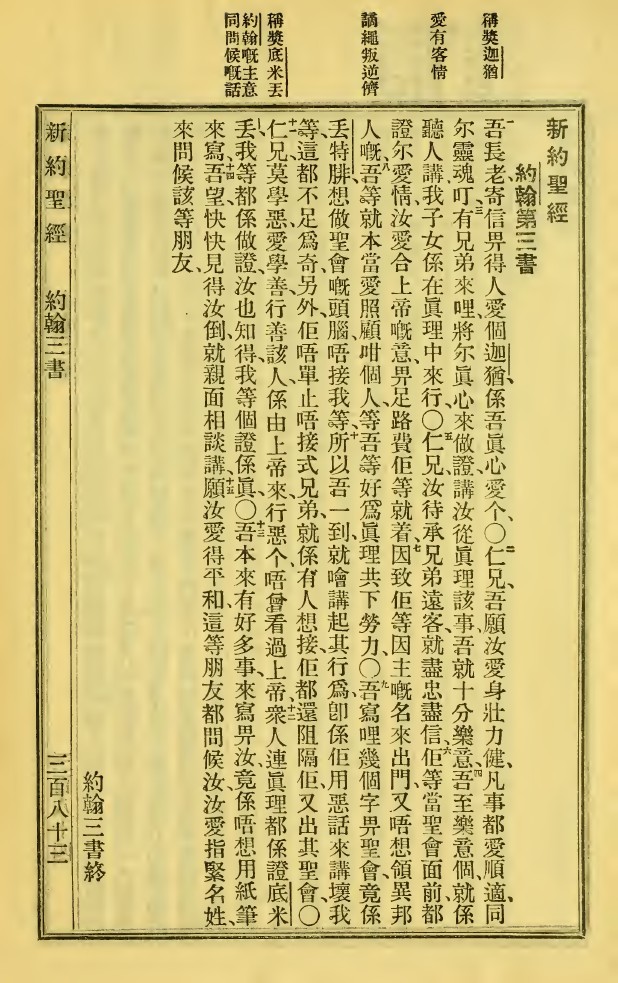 稱獎迦猶
愛有客情
誦繩叛逆儕
稱獎底米丟
約翰嘅主意
同問候嘅話
新約聖經
約翰第三書
一吾長老寄信畀得人愛個迦猶、係吾眞心愛个、〇二仁兄、吾願汝愛身壯力健、凡事都愛順適、同
尔靈魂叮、三有兄弟來哩、將尔眞心來做證、講汝從眞理該事、吾就十分樂意、四吾至樂意個、就係
聽人講我子女係在眞理中來行、〇五仁兄、汝待承兄弟遠客、就盡忠盡信、六佢等當聖會面前、都
證尔愛情、汝愛合上帝嘅意、畀足路費佢等就着、七因致佢等因主嘅名來出門、又唔想領異邦
人嘅、八吾等就本當愛照顧咁個人等、吾等好爲眞理共下勞力、〇九吾寫哩幾個字畀聖會、竟係
丟特腓、想做聖會嘅頭腦、唔接我等、十所以吾一到、就噲講起其行爲、卽係佢用惡話來講壞我
等、這都不足爲奇、另外佢唔單止唔接式兄弟、就係有人想接、佢都還阻隔佢、又出其聖會、〇
十一仁兄、莫學惡、愛學善、行善該人、係由上帝來、行惡个、唔曾看過上帝、十二衆人連眞理都係證底米
丟、我等都係做證、汝也知得我等個證係眞、〇十三吾本來有好多事、來寫畀汝、竟係唔想用紙筆
來寫、十四吾望快快見得汝倒、就親面相談講、十五願汝愛得平和、這等朋友都問候汝、汝愛指緊名姓、
來問候該等朋友、
約翰三書終
新約聖經 約翰三書 三百八十三